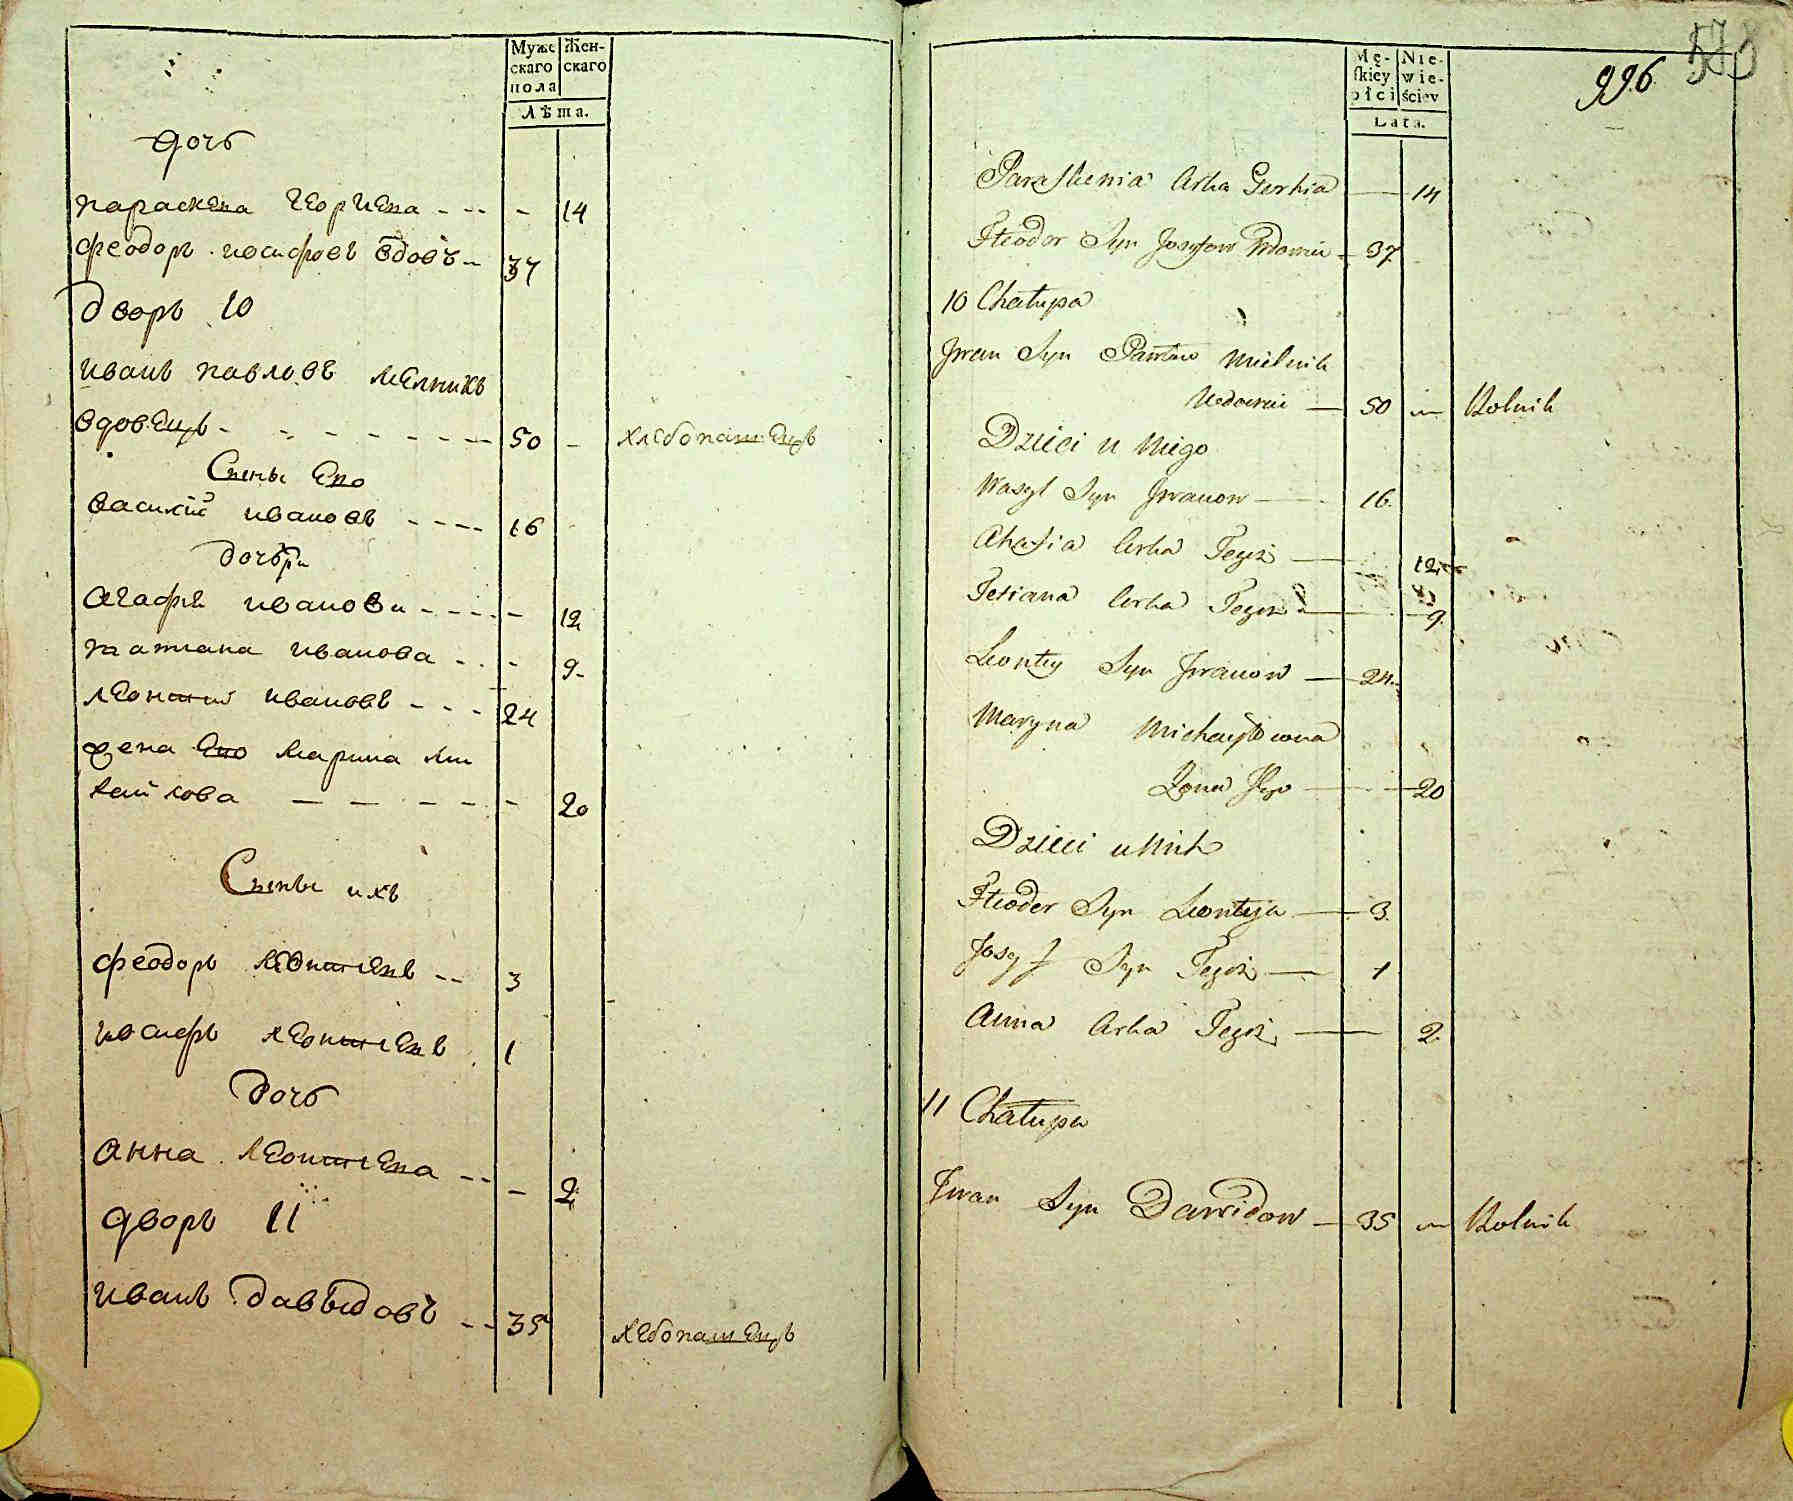 Муже
скаго
пола
Жен-
скаго
Лѣта.
дочь
параскева георгиева - - - - 14
феодоръ иосифовъ вдовъ - 37
дворъ 10
иванъ павловъ мелникъ
вдовецъ - - - - - - - - 50 - хлебопашецъ
Сыны Его
василий ивановъ - - - - 16
дочери
агафия иванова - - - - - 12
татиана иванова - - - 9 -
леонтий ивановъ - - - 24
жена Его марина ми
хайлова - - - - - - 20
Сыны ихъ
феодоръ леонтиевъ - - 3
иосифъ леонтиевъ 1
дочь
анна леонтиева - - - 2
дворъ 11
иванъ давыдовъ - - 35 хлебопашецъ
Mę-
skiey
płci
Nie-
wie-
ściey
Lata.
996
Paraskewia Córka Gerhia — 14
Fteodor Syn Josyfow Wdowiec - 37
10 Chałupa
Jwan Syn Pawłow Mielnik
Wdowiec — 50 — Rolnik
Dzieci u Niego
Wasyl Syn Jwanow — 16
Ahafia Córka Tegoż — 12
Tetiana Córka Tegoż — 9
Leontey Syn Jwanow — 24
Maryna Michayłowna
Żona Jego — 20
Dzieci u Nich
Fteoder Syn Leonteja — 3
Josyf Syn Tegoż — 1
Anna Córka Tegoż — 2
11 Chałupa
Jwan Syn Dawidow — 35 — Rolnik